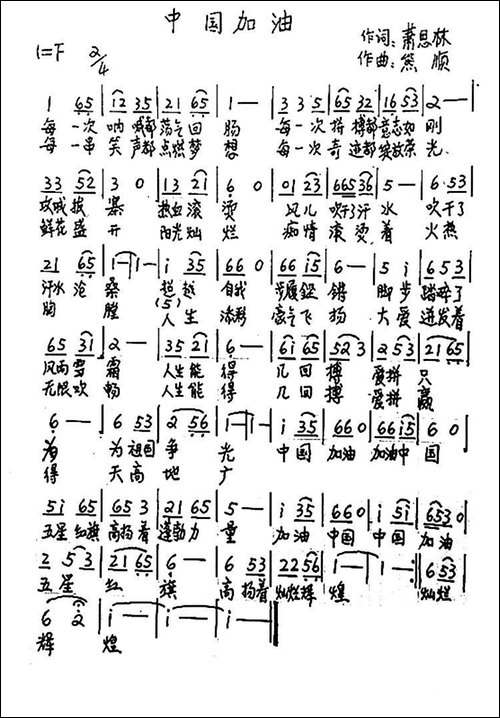 中国加油
作词:萧思林
1=F 2/4
作曲:熊 顺
1 65 | 12 35 | 21 65 | 1 — | 3 3 5 | 65 32 | 16 53 | 2 — |
每 一次 呐 喊都 荡气 回 肠 每 一次 拼 搏都 意志如 刚
每 一串 笑 声都 点燃 梦 想 每 一次 奇 迹都 绽放荣 光
33 52 | 3 0 | 13 21 | 6 0 | 01 23 | 665 36 | 5 — | 6 53 |
攻城 拔 寨 热血 滚 烫 风儿 吹干了汗 水 吹干了
鲜花 盛 开 阳光 灿 烂 痴情 滚 烫 着 火热
21 65 | 1 — | 1 — | i 35 | 66 0 | 66 i5 | 6 — | 5 i | 6 5 3 |
汗水 沧 桑 超 越 自我 步履 铿 锵 脚 步 踏碎了
胸 膛 (5) 人 生 添彩 豪气 飞 扬 大 爱 迸发着
65 31 | 2 — | 35 21 | 6 — | 6i 65 | 52 3 | 2 53 | 21 65 |
风雨 雪 霜 人生 能 得 几 回 搏 爱拼 只
无限 欢 畅 人生 能 得 几 回 搏 爱拼 赢
6 — | 6 53 | 2 56 | 1 — | 1 — | i 35 | 66 0 | 66 i5 | 6 0 |
为 为 祖国 争 光 中 国 加油 加油 中 国
得 天 高 地 广
5i 65 | 65 3 | 21 65 | 5 — | i 35 | 66 0 | i 5i | 653 0 |
五星 红旗 高扬 着 蓬勃 力 量 加油 中国 中 国 加油
2 53 | 21 65 | 6 — | 6 53 | 22 56 | 1 — | 1 — | 6 53 |
五星 红 旗 高 扬着 灿烂辉 煌 灿烂
6 2 | i — | i — | i — |
辉 煌